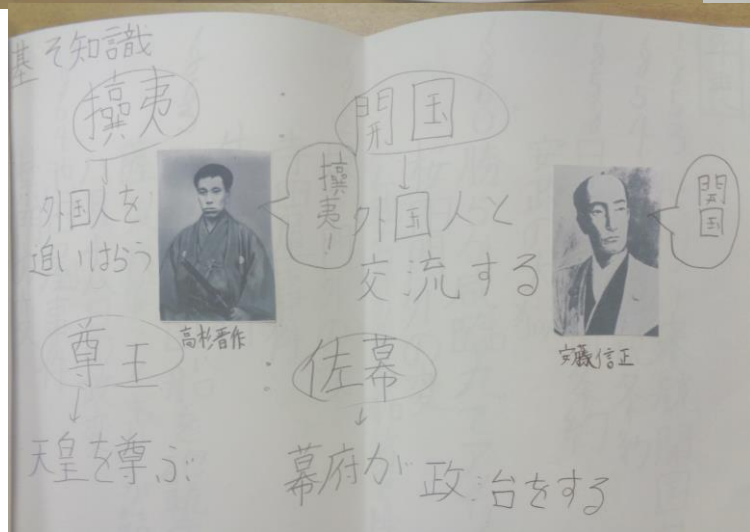 基そ知識
攘夷
外国人を
追いはらう
攘夷!
高杉晋作
開国
外国人と
交流する
開国
安藤信正
尊王
天皇を尊ぶ
佐幕
幕府が政治をする